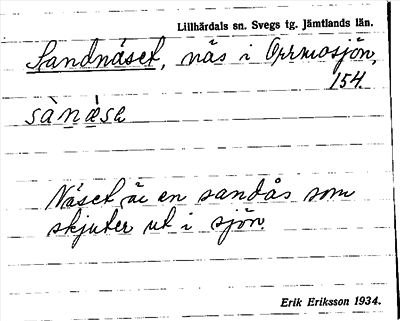 Lillhärdals sn. Svegs tg. Jämtlands län.
Sandnäset, näs i Orrmosjön,
154.
sànǽsa
Näset är en sandås som
skjuter ut i sjön.
Erik Eriksson 1934.